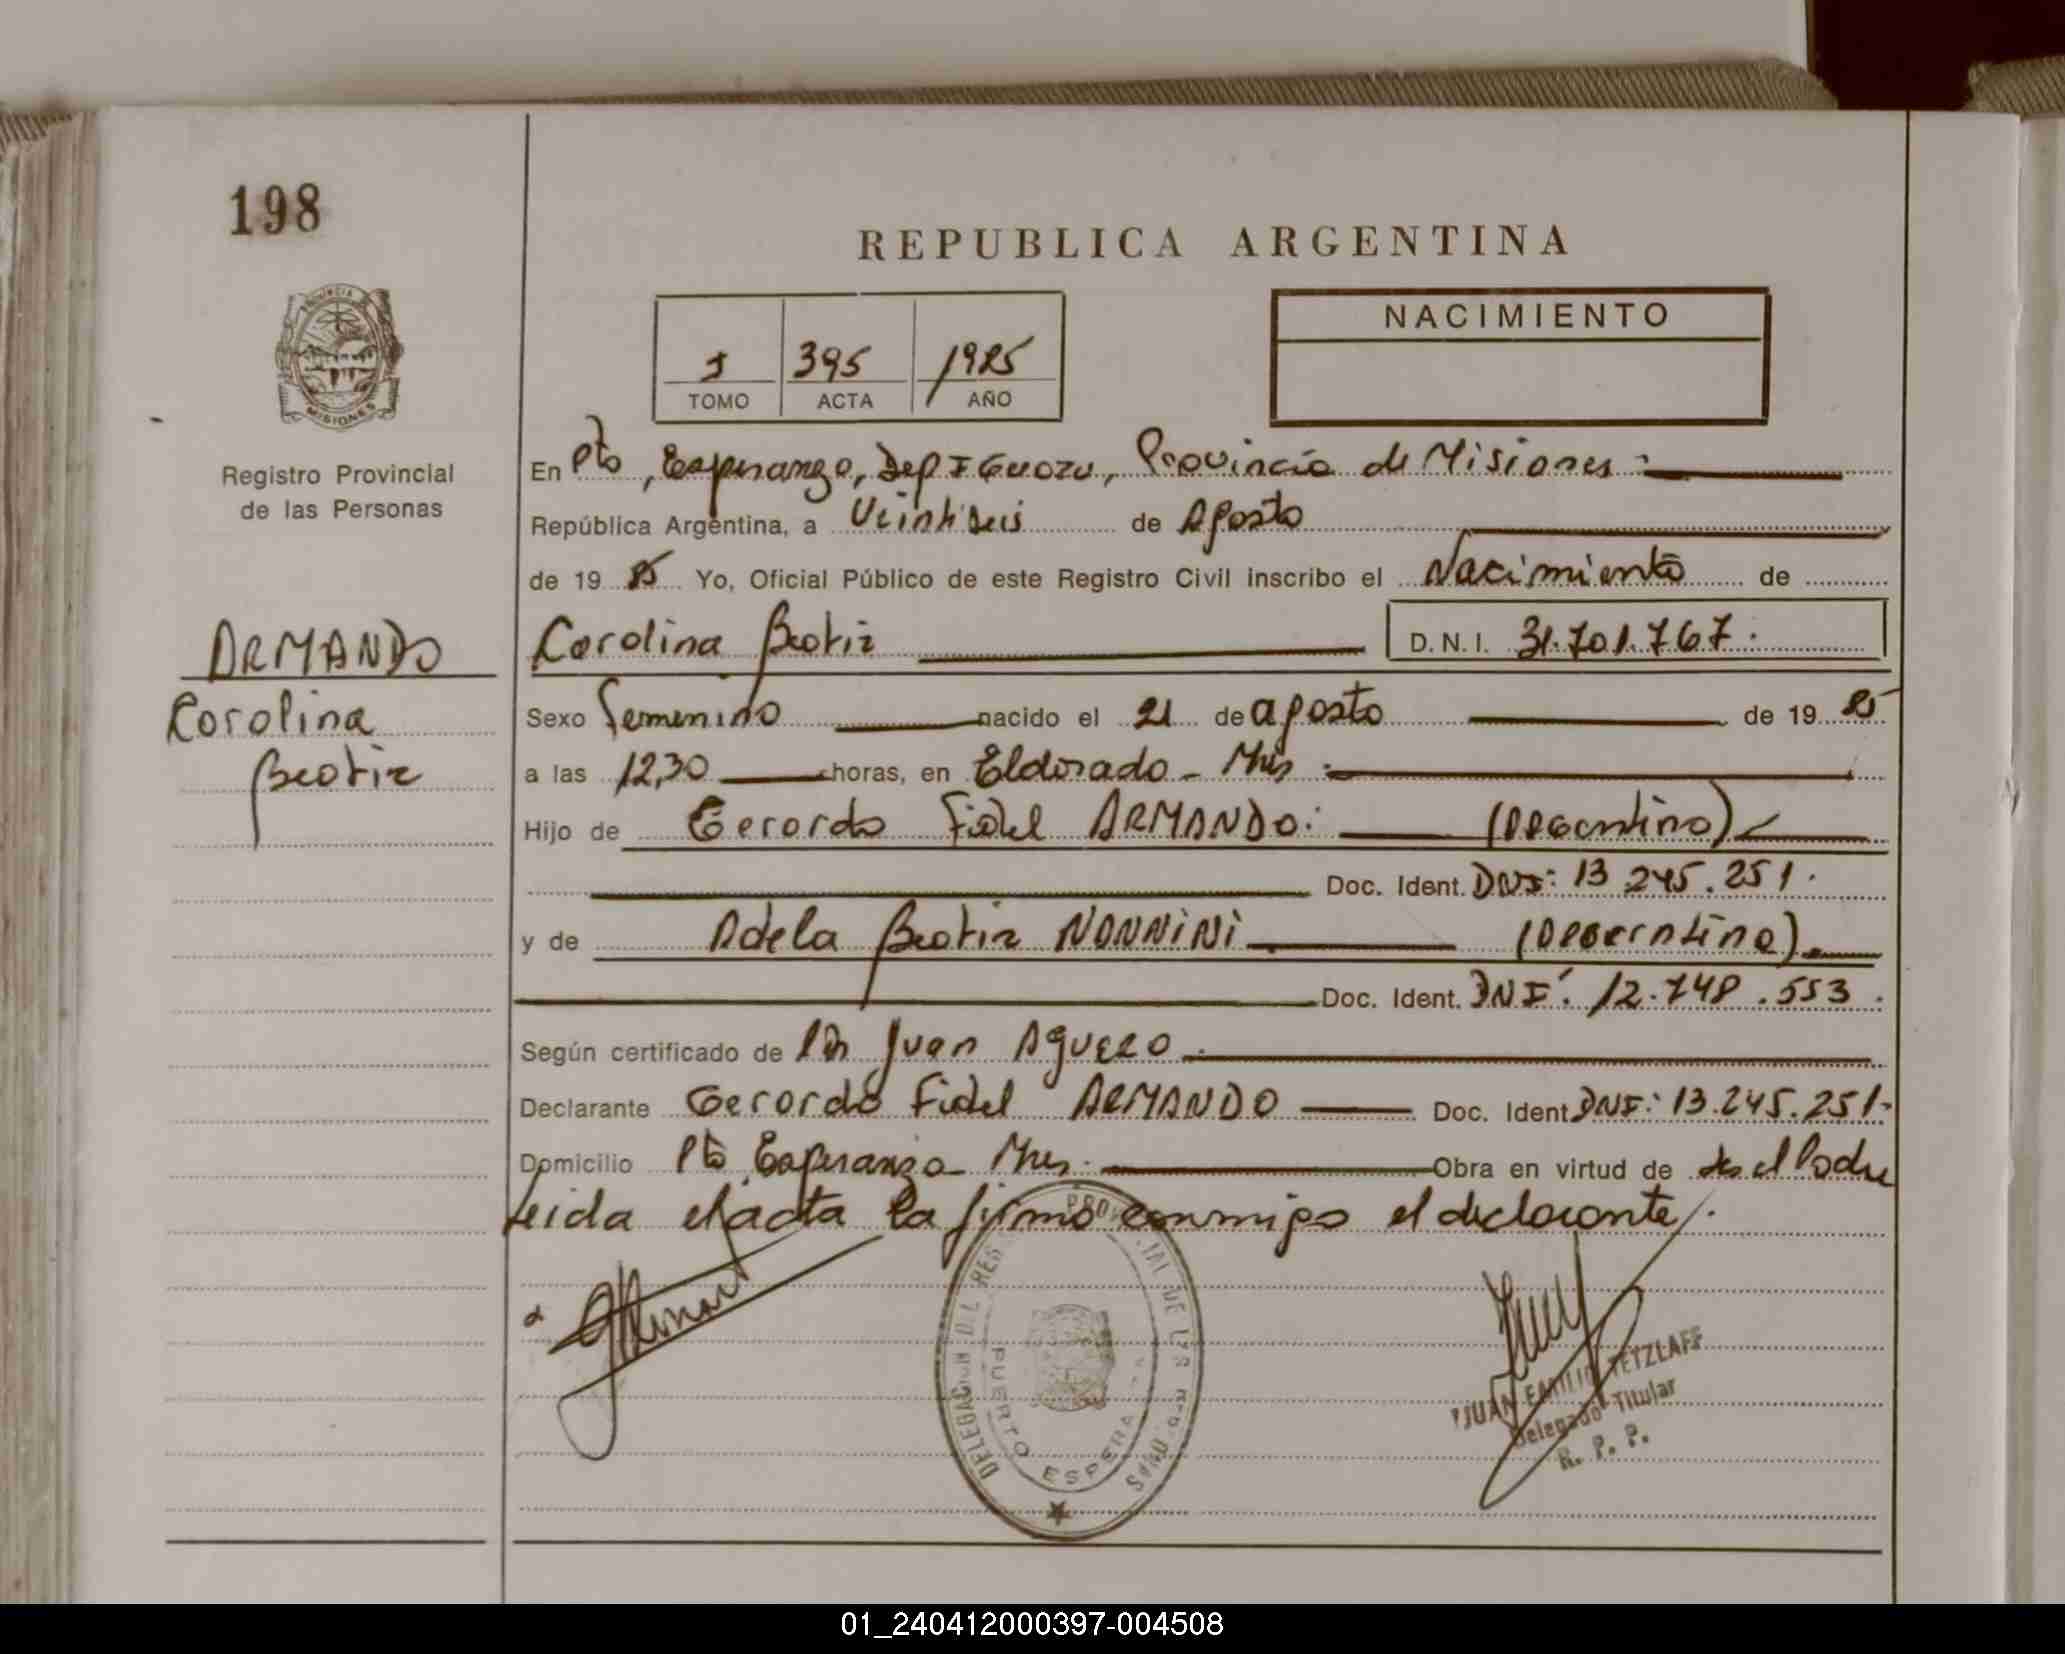 198
REPUBLICA ARGENTINA
NACIMIENTO
I 395 1985
TOMO ACTA AÑO
PROVINCIA DE
MISIONES
Registro Provincial
de las Personas
En Pto, Esperanza, Dep IGuazu, Provincia de Misiones
República Argentina, a Veintiseis de Agosto
de 19 85 Yo, Oficial Público de este Registro Civil inscribo el Nacimiento de
ARMANDO
Carolina
Beatriz
Carolina Beatriz D.N.I. 31.701.767.
Sexo Femenino nacido el 21 de agosto de 19 85
a las 12,30 horas, en Eldorado - Mnes
Hijo de Gerardo Fidel ARMANDO: (Argentino)
Doc. Ident. DNI: 13.245.251.
y de Adela Beatriz NANNINI (Argentina)
Doc. Ident. DNI: 12.748.553.
Según certificado de Juan Aguero
Declarante Gerardo Fidel ARMANDO Doc. Ident DNI: 13.245.251-
Domicilio Pto Esperanza Mnes. Obra en virtud de ser el Padre
Leida el acta la firma conmigo el declarante.
DELEGACION DEL REG PROVINCIAL DE LAS PERSONAS
PUERTO ESPERA
JUAN EMILIO TETZLAFF
Delegado Titular
R. P. P.
01_240412000397-004508